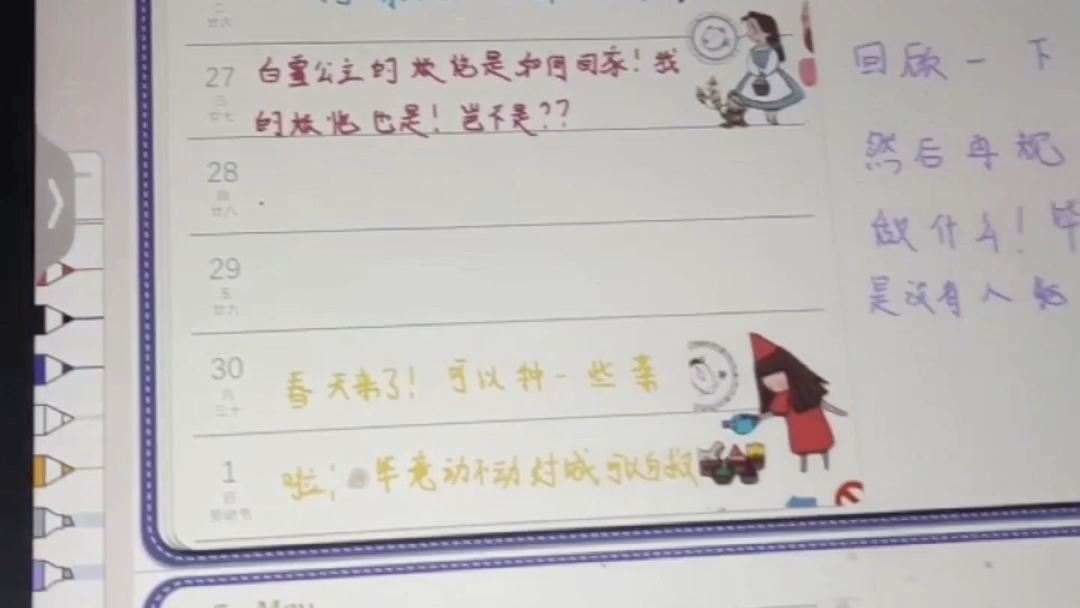 二
廿六
27
三
廿七
白雪公主的烦恼是如何回家！我
的烦恼也是！岂不是??
28
四
廿八
29
五
廿九
30
六
三十
春天来了！可以种一些菜
1
日
劳动节
啦；毕竟动不动封城可以自救
回顾一下
然后再规
做什么！毕
是没有人能
May